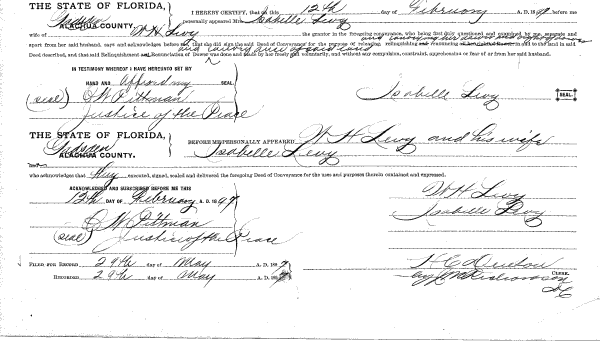 THE STATE OF FLORIDA,
Gadsden
ALACHUA COUNTY.
I HEREBY CERTIFY, that on this 12th day of February A. D. 1897 before me
personally appeared Mrs. Isabelle Levy
wife of W H Levy the grantor in the foregoing conveyance, who being first duly questioned and examined by me, separate and
apart from her said husband, says and acknowledges before me, that she did sign the said Deed of Conveyance for the purpose of releasing, relinquishing and renouncing all her right of dower in and to the land in said
Deed described, and that said Relinquishment and Renunciation of Dower was done and made by her freely and voluntarily, and without any compulsion, constraint, apprehension or fear of or from her said husband.
IN TESTIMONY WHEREOF I HAVE HEREUNTO SET MY
HAND AND SEAL
(seal) O W Pittman
Justice of the Peace
Isabelle Levy SEAL
THE STATE OF FLORIDA,
Gadsden
ALACHUA COUNTY.
BEFORE ME PERSONALLY APPEARED W H Levy and his wife
Isabelle Levy
who acknowledges that they executed, signed, sealed and delivered the foregoing Deed of Conveyance for the uses and purposes therein contained and expressed.
ACKNOWLEDGED AND SUBSCRIBED BEFORE ME THIS
12th DAY OF February A. D. 1897
O W Pittman
(seal) Justice of the Peace
W H Levy
Isabelle Levy
FILED FOR RECORD 29th day of May A. D. 1897
RECORDED 29th day of May A. D. 1897
H C Denton
CLERK.
by
D C